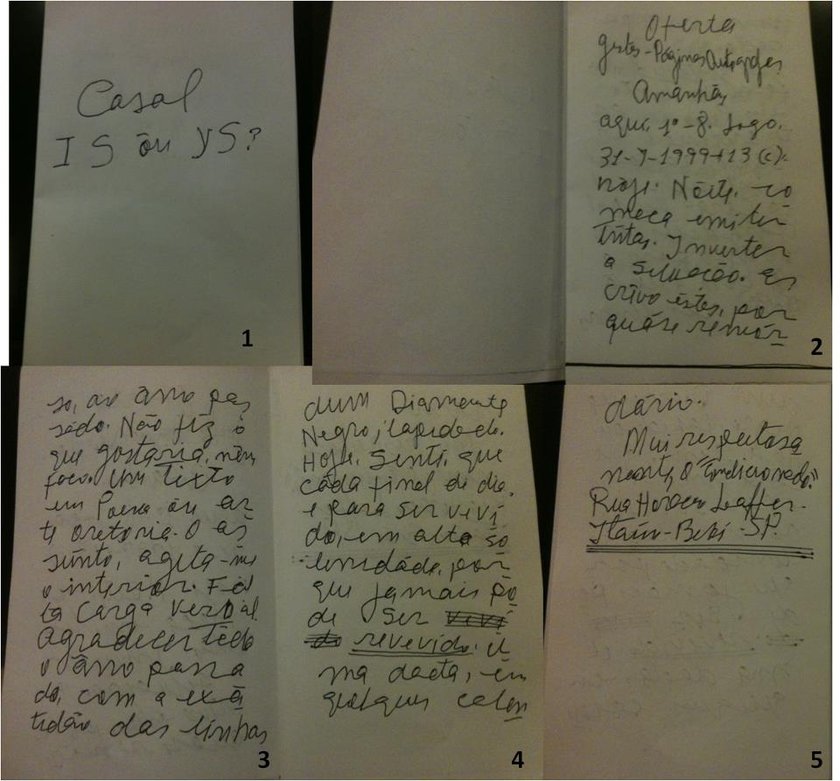 Casal
IS ou YS?
1
Oferta
gestos-Páginas
Amanhã,
aqui, 1º-8. Logo,
31-7-1999+13 (c).
hoje. Noite. co
meça emitir
tintas. Inverter
a situação. es
crivo estes, por
quáse remór
2
so, ao âno pas
sádo. Não fiz o
que gostaria, nem
faco. Um texto
em Poesa ou ar
te oretoria. O ás
sunto, agita-me
o interior. Fal
ta carga verbal.
Agradecer tedo
o âno passa
do, com a exá
tidão das linhas
3
dum Diamante
Negro, lapidado.
Hoje. Senti, que
cada final de dia,
e para ser vivi
do, em alta so
lenidáde, por
que jamais pó
de ser vivi
do revevido. U
ma dacta, em
qualquer calen
4
dário.
Mui respeitosa
mente, O "Condicionado."
Rua Horacio Laffer-
Itaim-Bibi-SP.
5